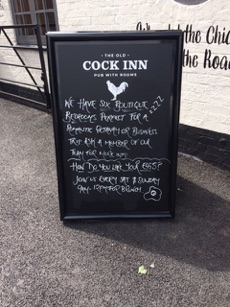 · THE OLD ·
COCK INN
PUB WITH ROOMS
WE HAVE SIX BOUTIQUE
BEDROOMS PERFECT FOR A ZZZZ
ROMANTIC GETAWAY OR BUSINESS
JUST ASK A MEMBER OF OUR
TEAM FOR MORE INFO
HOW DO YOU LIKE YOUR EGGS?
JOIN US EVERY SAT & SUNDAY
9AM - 12PM FOR BRUNCH
the Chic
the Roa